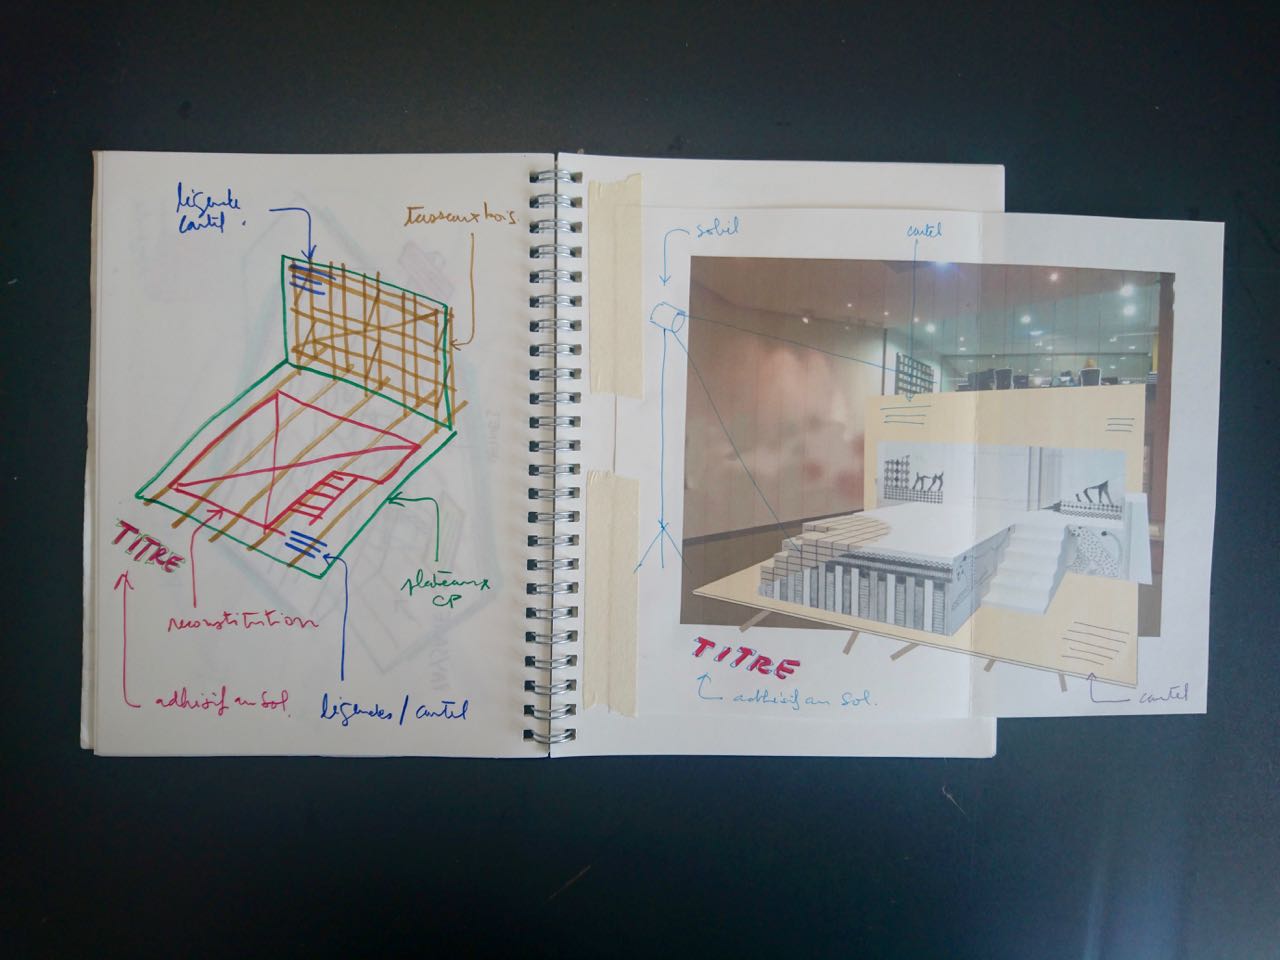 légende
cartel.
tasseaux bois.
TITRE
reconstitution
plateaux
CP
adhésif au sol.
légendes / cartel
soleil
cartel
TITRE
adhésif au sol.
cartel